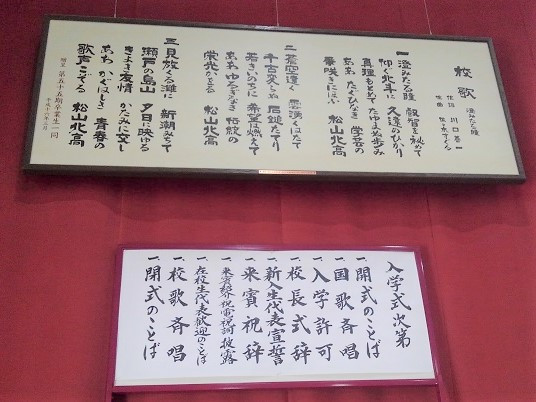 校歌
澄みたる瞳
作詞 川口
作曲
一 澄みたる瞳 叡智を秘めて
仰ぐ北斗に 久遠のひかり
真理もとめて たゆまぬ歩み
ああ たぐひなき 学芸の
華咲きにほふ 松山北高
二 蒼空遠く 雲湧くはたて
千古ゆるがぬ 石鎚たてり
若きいのちに 希望は燃えて
ああ ゆるぎなき 伝統の
栄光かをる 松山北高
三 見放くる灘に 新潮みちて
瀬戸の島山 夕日に映ゆる
きよき友情 かたみに交し
ああ かぐはしき 青春の
歌声こぞる 松山北高
贈呈 第五十五期卒業生一同
入学式次第
一、開式のことば
一、国歌斉唱
一、入学許可
一、校長式辞
一、新入生代表宣誓
一、来賓祝辞
一、来賓紹介祝電祝詞披露
一、在校生代表歓迎のことば
一、校歌斉唱
一、閉式のことば